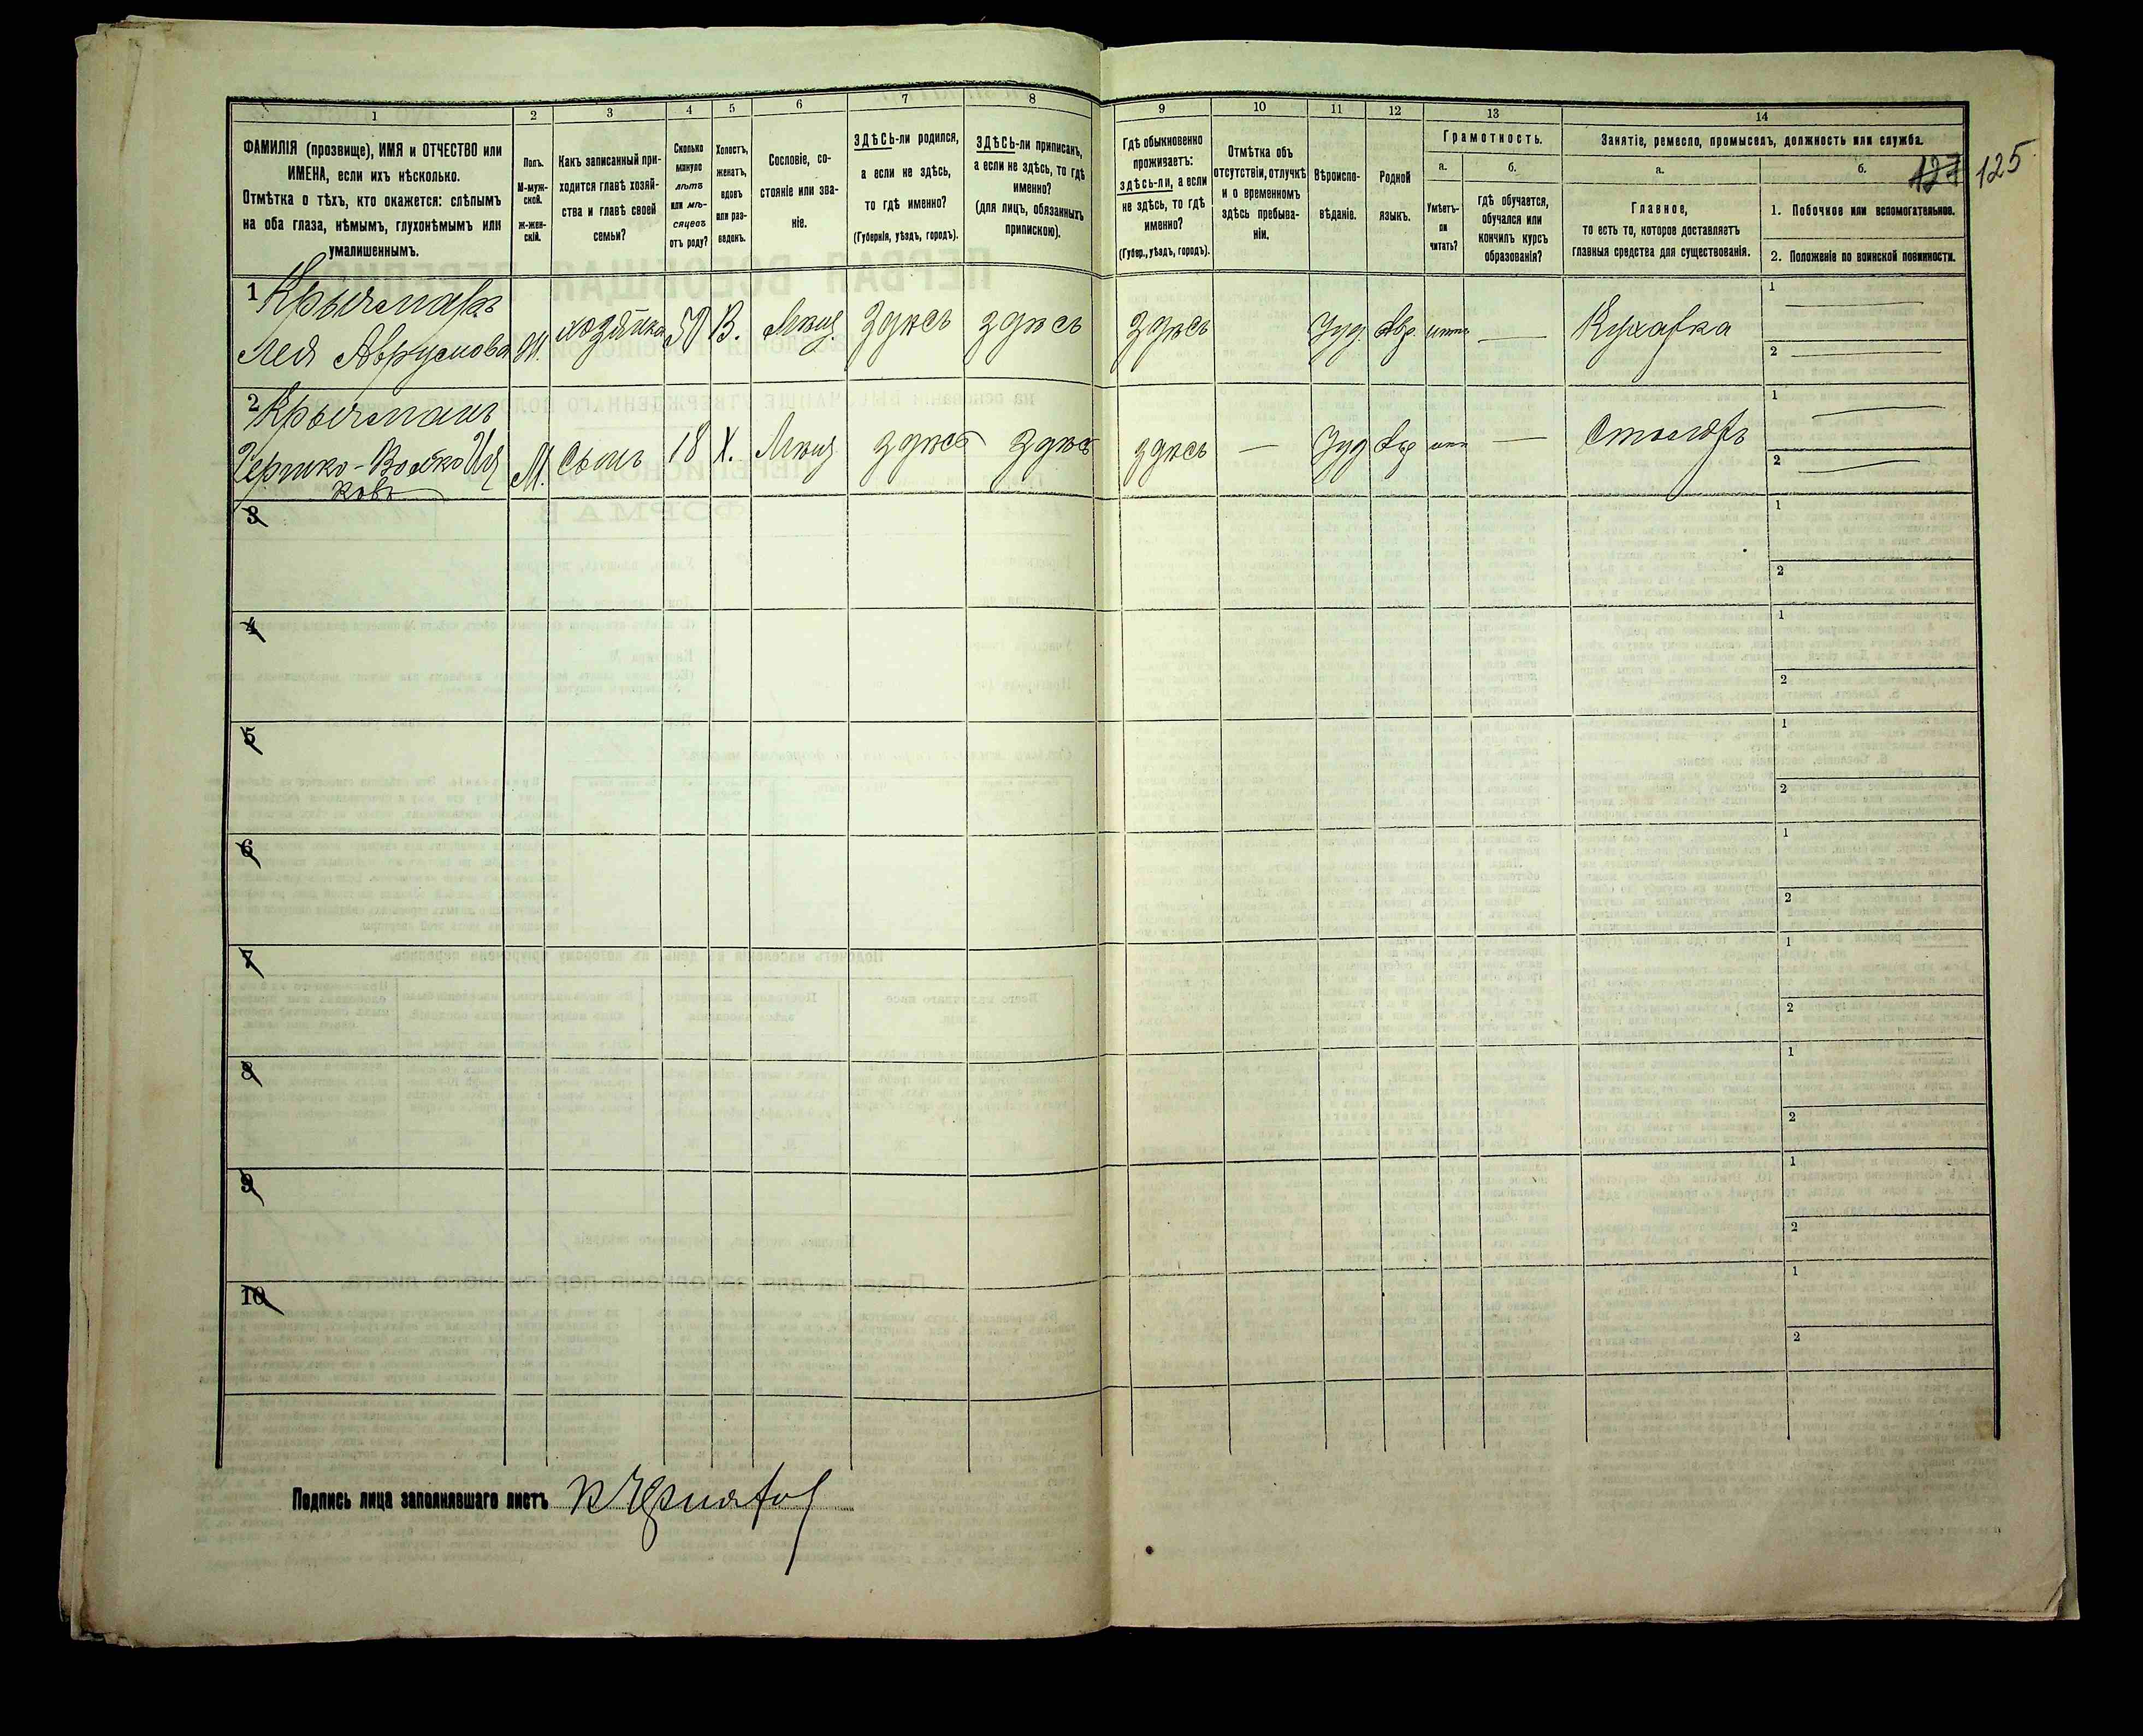 1 2 3 4 5 6 7 8 9 10 11 12 13 14
ФАМИЛІЯ (прозвище), ИМЯ и ОТЧЕСТВО или
ИМЕНА, если ихъ нѣсколько.
Отмѣтка о тѣхъ, кто окажется: слѣпымъ
на оба глаза, нѣмымъ, глухонѣмымъ или
умалишеннымъ.
Полъ.
М-муж-
ской.
Ж-жен-
скій.
Какъ записанный при-
ходится главѣ хозяй-
ства и главѣ своей
семьи?
Сколько
минуло
лѣтъ
или мѣ-
сяцевъ
отъ роду?
Холостъ,
женатъ,
вдовъ
или раз-
веденъ.
Сословіе, со-
стояніе или зва-
ніе.
ЗДѢСЬ-ли родился,
а если не здѣсь,
то гдѣ именно?
(Губернія, уѣздъ, городъ).
ЗДѢСЬ-ли приписанъ,
а если не здѣсь, то гдѣ
именно?
(для лицъ, обязанныхъ
припискою).
Гдѣ обыкновенно
проживаетъ:
здѣсь-ли, а если
не здѣсь, то гдѣ
именно?
(Губер., уѣздъ, городъ).
Отмѣтка объ
отсутствіи, отлучкѣ
и о временномъ
здѣсь пребыва-
ніи.
Вѣроиспо-
вѣданіе.
Родной
языкъ.
Грамотность.
а.
Умѣетъ-
ли
читать?
б.
гдѣ обучается,
обучался или
кончилъ курсъ
образованія?
Занятіе, ремесло, промыселъ, должность или служба.
а.
Главное,
то есть то, которое доставляетъ
главныя средства для существованія.
б.
1. Побочное или вспомогательное.
2. Положеніе по воинской повинности.
127 125
1
Лея Аврумова Ж. хозяйка 50 В. Мѣщ. здѣсь здѣсь здѣсь Іуд. Евр. — Кухарка
1 —
2 —
2 Крычманъ
М. Сынъ 18 Х. Мѣщ здѣсь здѣсь здѣсь — Іуд Евр — Столяръ
1 —
2 —
3 1
2
4 1
2
5 1
2
6 1
2
7 1
2
8 1
2
9 1
2
10 1
2
Подпись лица заполнявшаго листъ